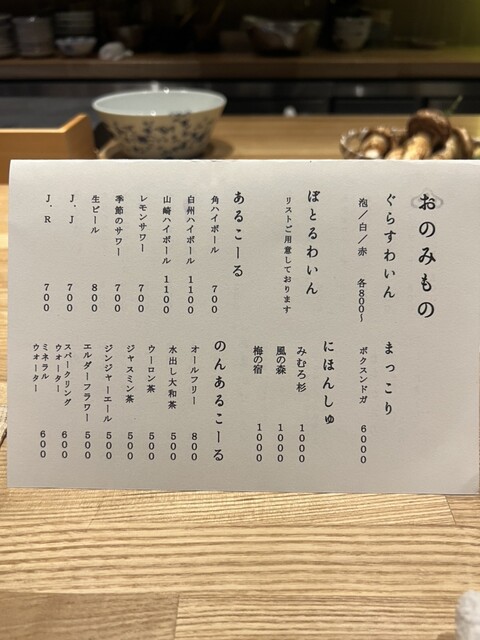 おのみもの
ぐらすわいん
泡／白／赤 各800〜
まっこり
ボクスンドガ 6000
ぼとるわいん
リストご用意しております
にほんしゅ
みむろ杉 1000
風の森 1000
梅の宿 1000
あるこーる
角ハイボール 700
白州ハイボール 1100
山崎ハイボール 1100
レモンサワー 700
季節のサワー 700
生ビール 800
J．J 700
J．R 700
のんあるこーる
オールフリー 800
水出し大和茶 500
ウーロン茶 500
ジャスミン茶 500
ジンジャーエール 500
エルダーフラワー 500
スパークリング
ウォーター 600
ミネラル
ウォーター 600